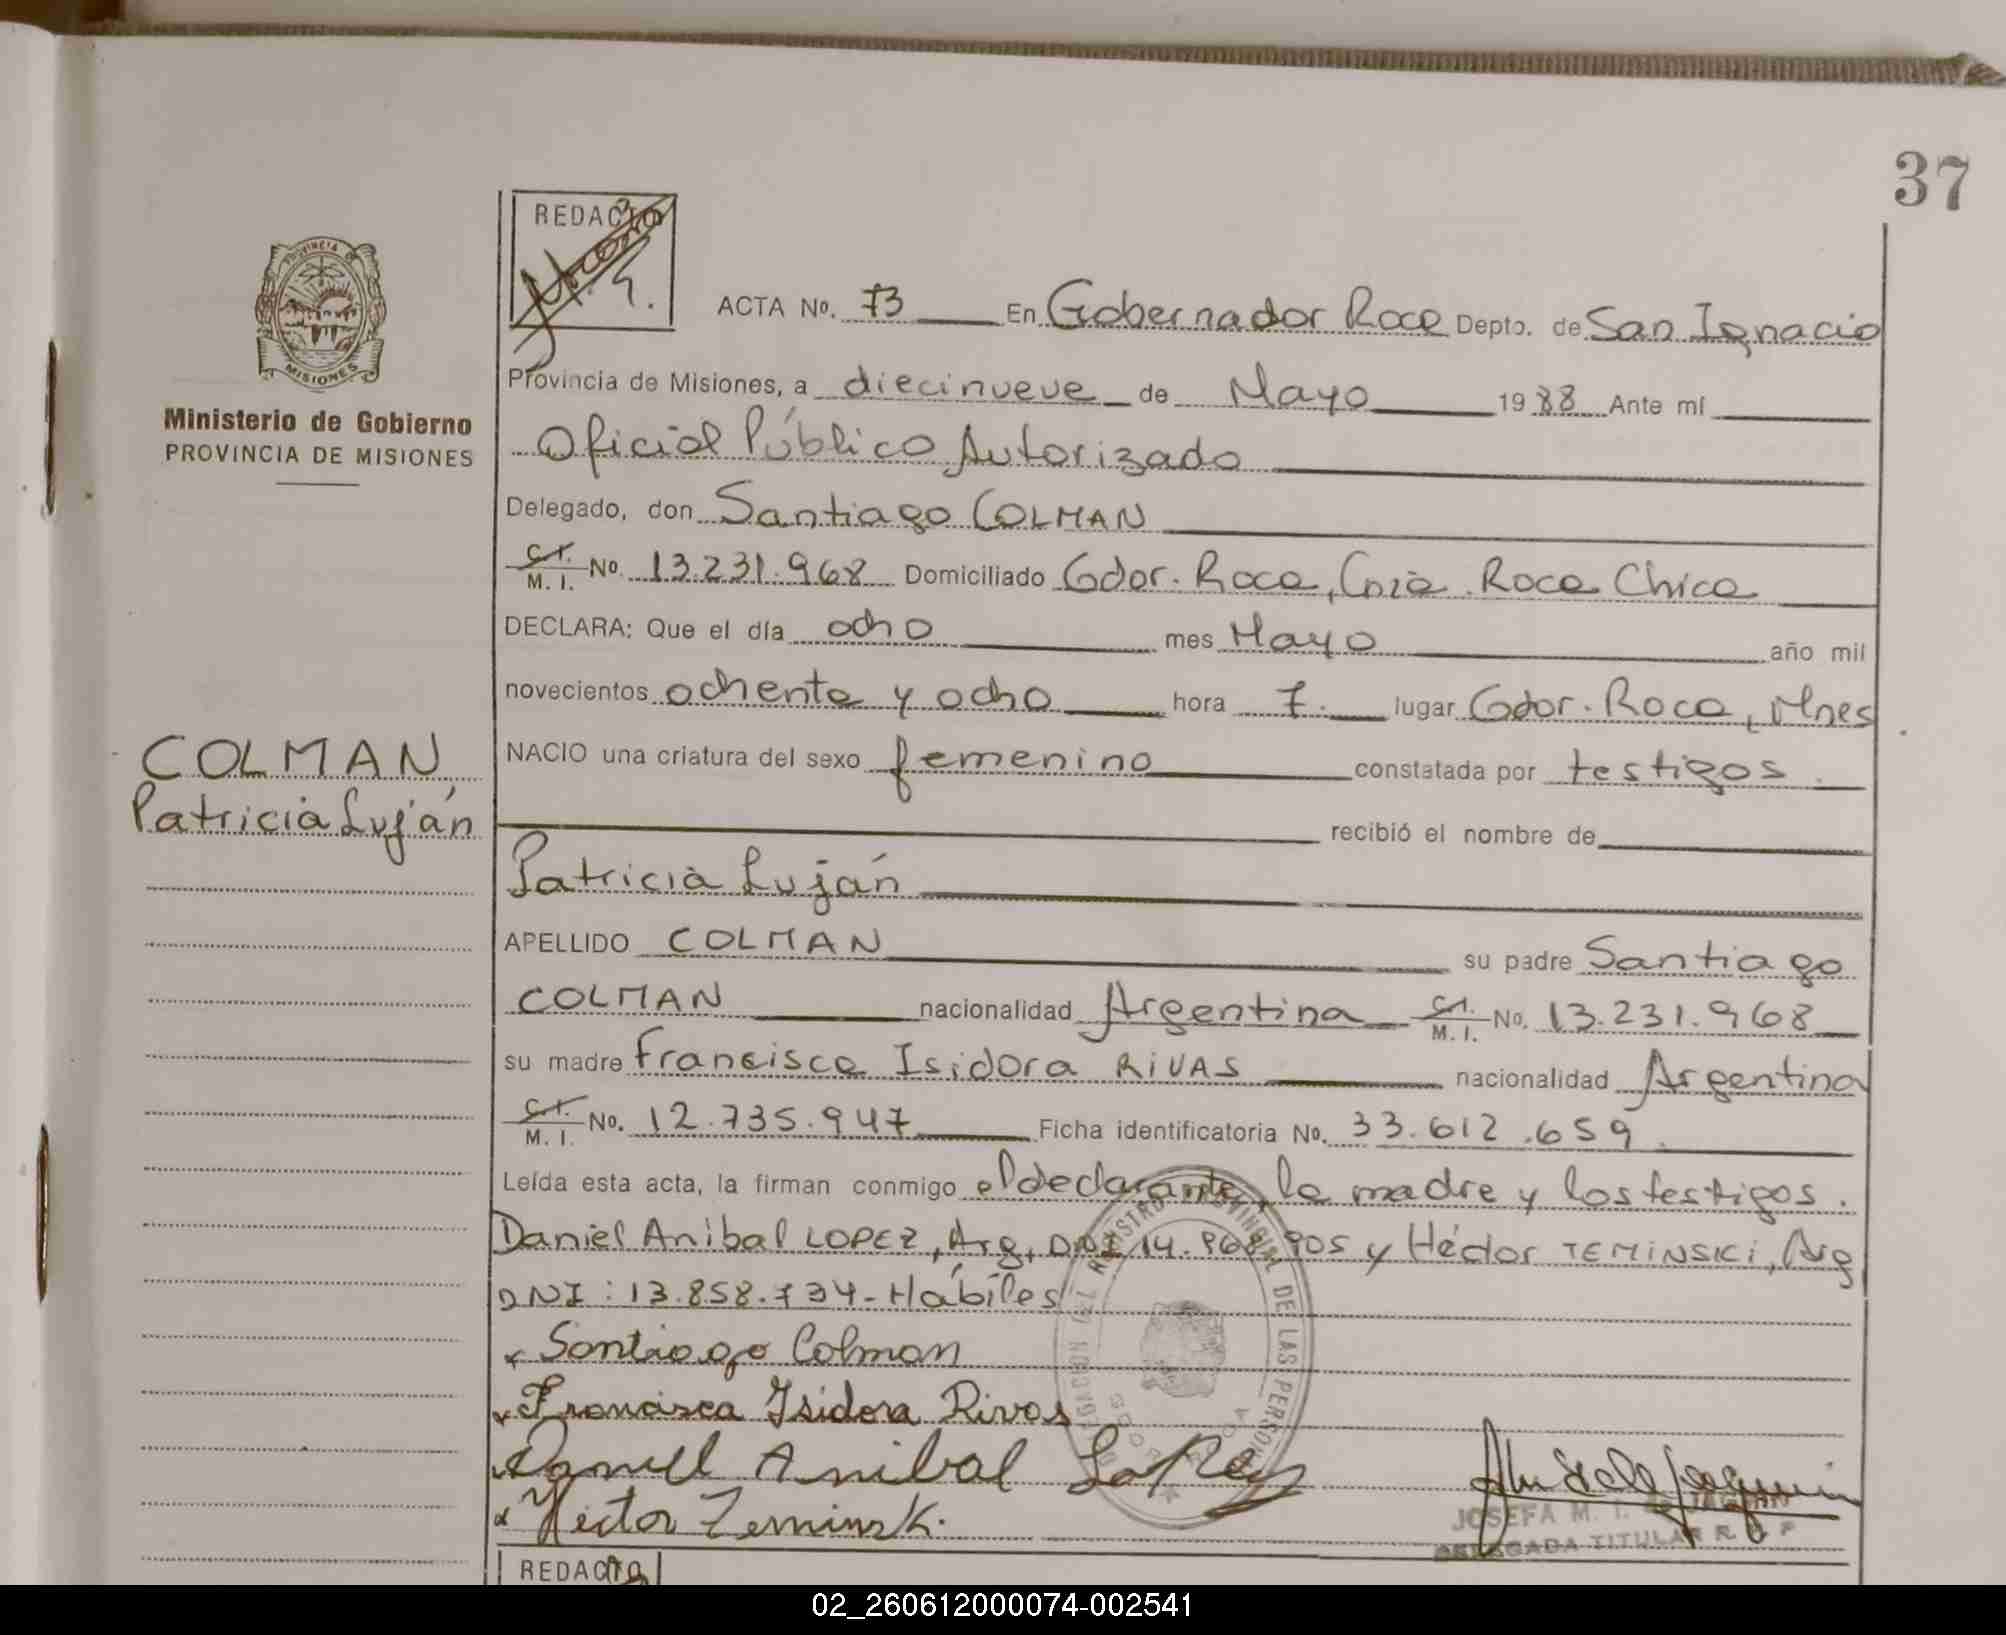 37
REDACTO
ACTA No. 73 En Gobernador Roca Depto. de San Ignacio
PROVINCIA DE
MISIONES
Ministerio de Gobierno
PROVINCIA DE MISIONES
Provincia de Misiones, a diecinueve de Mayo 1988 Ante mí
Oficial Público Autorizado
Delegado, don Santiago COLMAN
C.I. M. I. No. 13.231.968 Domiciliado Gdor. Roca, Cnia. Roca Chica
DECLARA: Que el día ocho mes Mayo año mil
novecientos ochenta y ocho hora 7. lugar Gdor. Roca, Mnes
NACIO una criatura del sexo femenino constatada por testigos.
recibió el nombre de
COLMAN
Patricia Luján
Patricia Luján
APELLIDO COLMAN su padre Santiago
COLMAN nacionalidad Argentina C.I. M. I. No. 13.231.968
su madre Francisca Isidora RIVAS nacionalidad Argentina
C.I. M. I. No. 12.735.947 Ficha identificatoria No. 33.612.659
Leída esta acta, la firman conmigo el declarante, la madre y los testigos.
Daniel Anibal LOPEZ, Arg, DNI 14.968.905 y Héctor TEMINSKI, Arg
DNI: 13.858.734- Hábiles
Santiago Colman
Francisca Isidora Rivas
Daniel Anibal Lopez
Hector Teminski.
REGISTRO PROVINCIAL DE LAS PERSONAS
JOSEFA M. I. de
DELEGADA TITULAR R. P. P
REDACTO
02_260612000074-002541